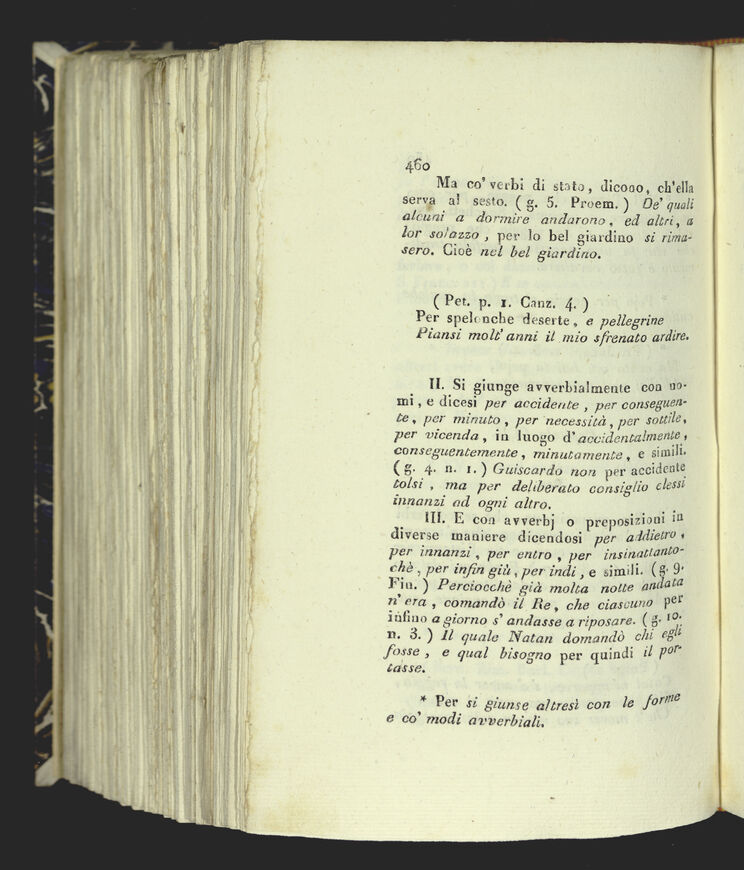 460
Ma co' verbi di stato, dicooo, ch'ella
serva al sesto. ( g. 5. Proem. ) De' quali
alcuni a dormire andarono, ed altri, a
lor solazzo, per lo bel giardino si rima-
sero. Cioè nel bel giardino.
( Pet. p. 1. Canz. 4. )
Per spelonche deserte, e pellegrine
Piansi molt' anni il mio sfrenato ardire.
II. Si giunge avverbialmente con no-
mi, e dicesi per accidente, per conseguen-
te, per minuto, per necessità, per sottile,
per vicenda, in luogo d'accidentalmente,
conseguentemente, minutamente, e simili.
( g. 4. n. 1. ) Guiscardo non per accidente
tolsi, ma per deliberato consiglio elessi
innanzi ad ogni altro.
III. E con avverbj o preposizioni in
diverse maniere dicendosi per addietro,
per innanzi, per entro, per insinattanto-
chè, per infin giù, per indi, e simili. (g. 9.
Fin. ) Perciocchè già molta notte andata
n'era, comandò il Re, che ciascuno per
infino a giorno s' andasse a riposare. ( g. 10.
n. 3. ) Il quale Natan domandò chi egli
fosse, e qual bisogno per quindi il por-
tasse.
* Per si giunse altresì con le forme
e co' modi avverbiali.